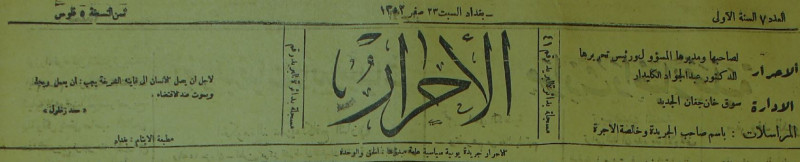 العدد ٧ السنة الاولى
بغداد السبت ٢٣ صفر ١٣٥٢
ثمن النسخة ٥ فلوس
الاحرار
لصاحبها ومديرها المسؤول ورئيس تحريرها
الدكتور عبدالجواد الكليدار
الادارة سوق خان جغان الجديد
المراسلات : باسم صاحب الجريدة وخالصة الاجرة
مسجلة بدائرة البريد رقم ٤١
الأحرار
مسجلة بدائرة البريد رقم
لاجل ان يصل الانسان الى غايته الشريفة يجب : ان يعمل ويجد
ويموت عند الاقتضاء .
« سعد زغلول »
مطبعة الايتام : بغداد
الاحرار جريدة يومية سياسية عامة مبدؤها : الحق والوحدة .